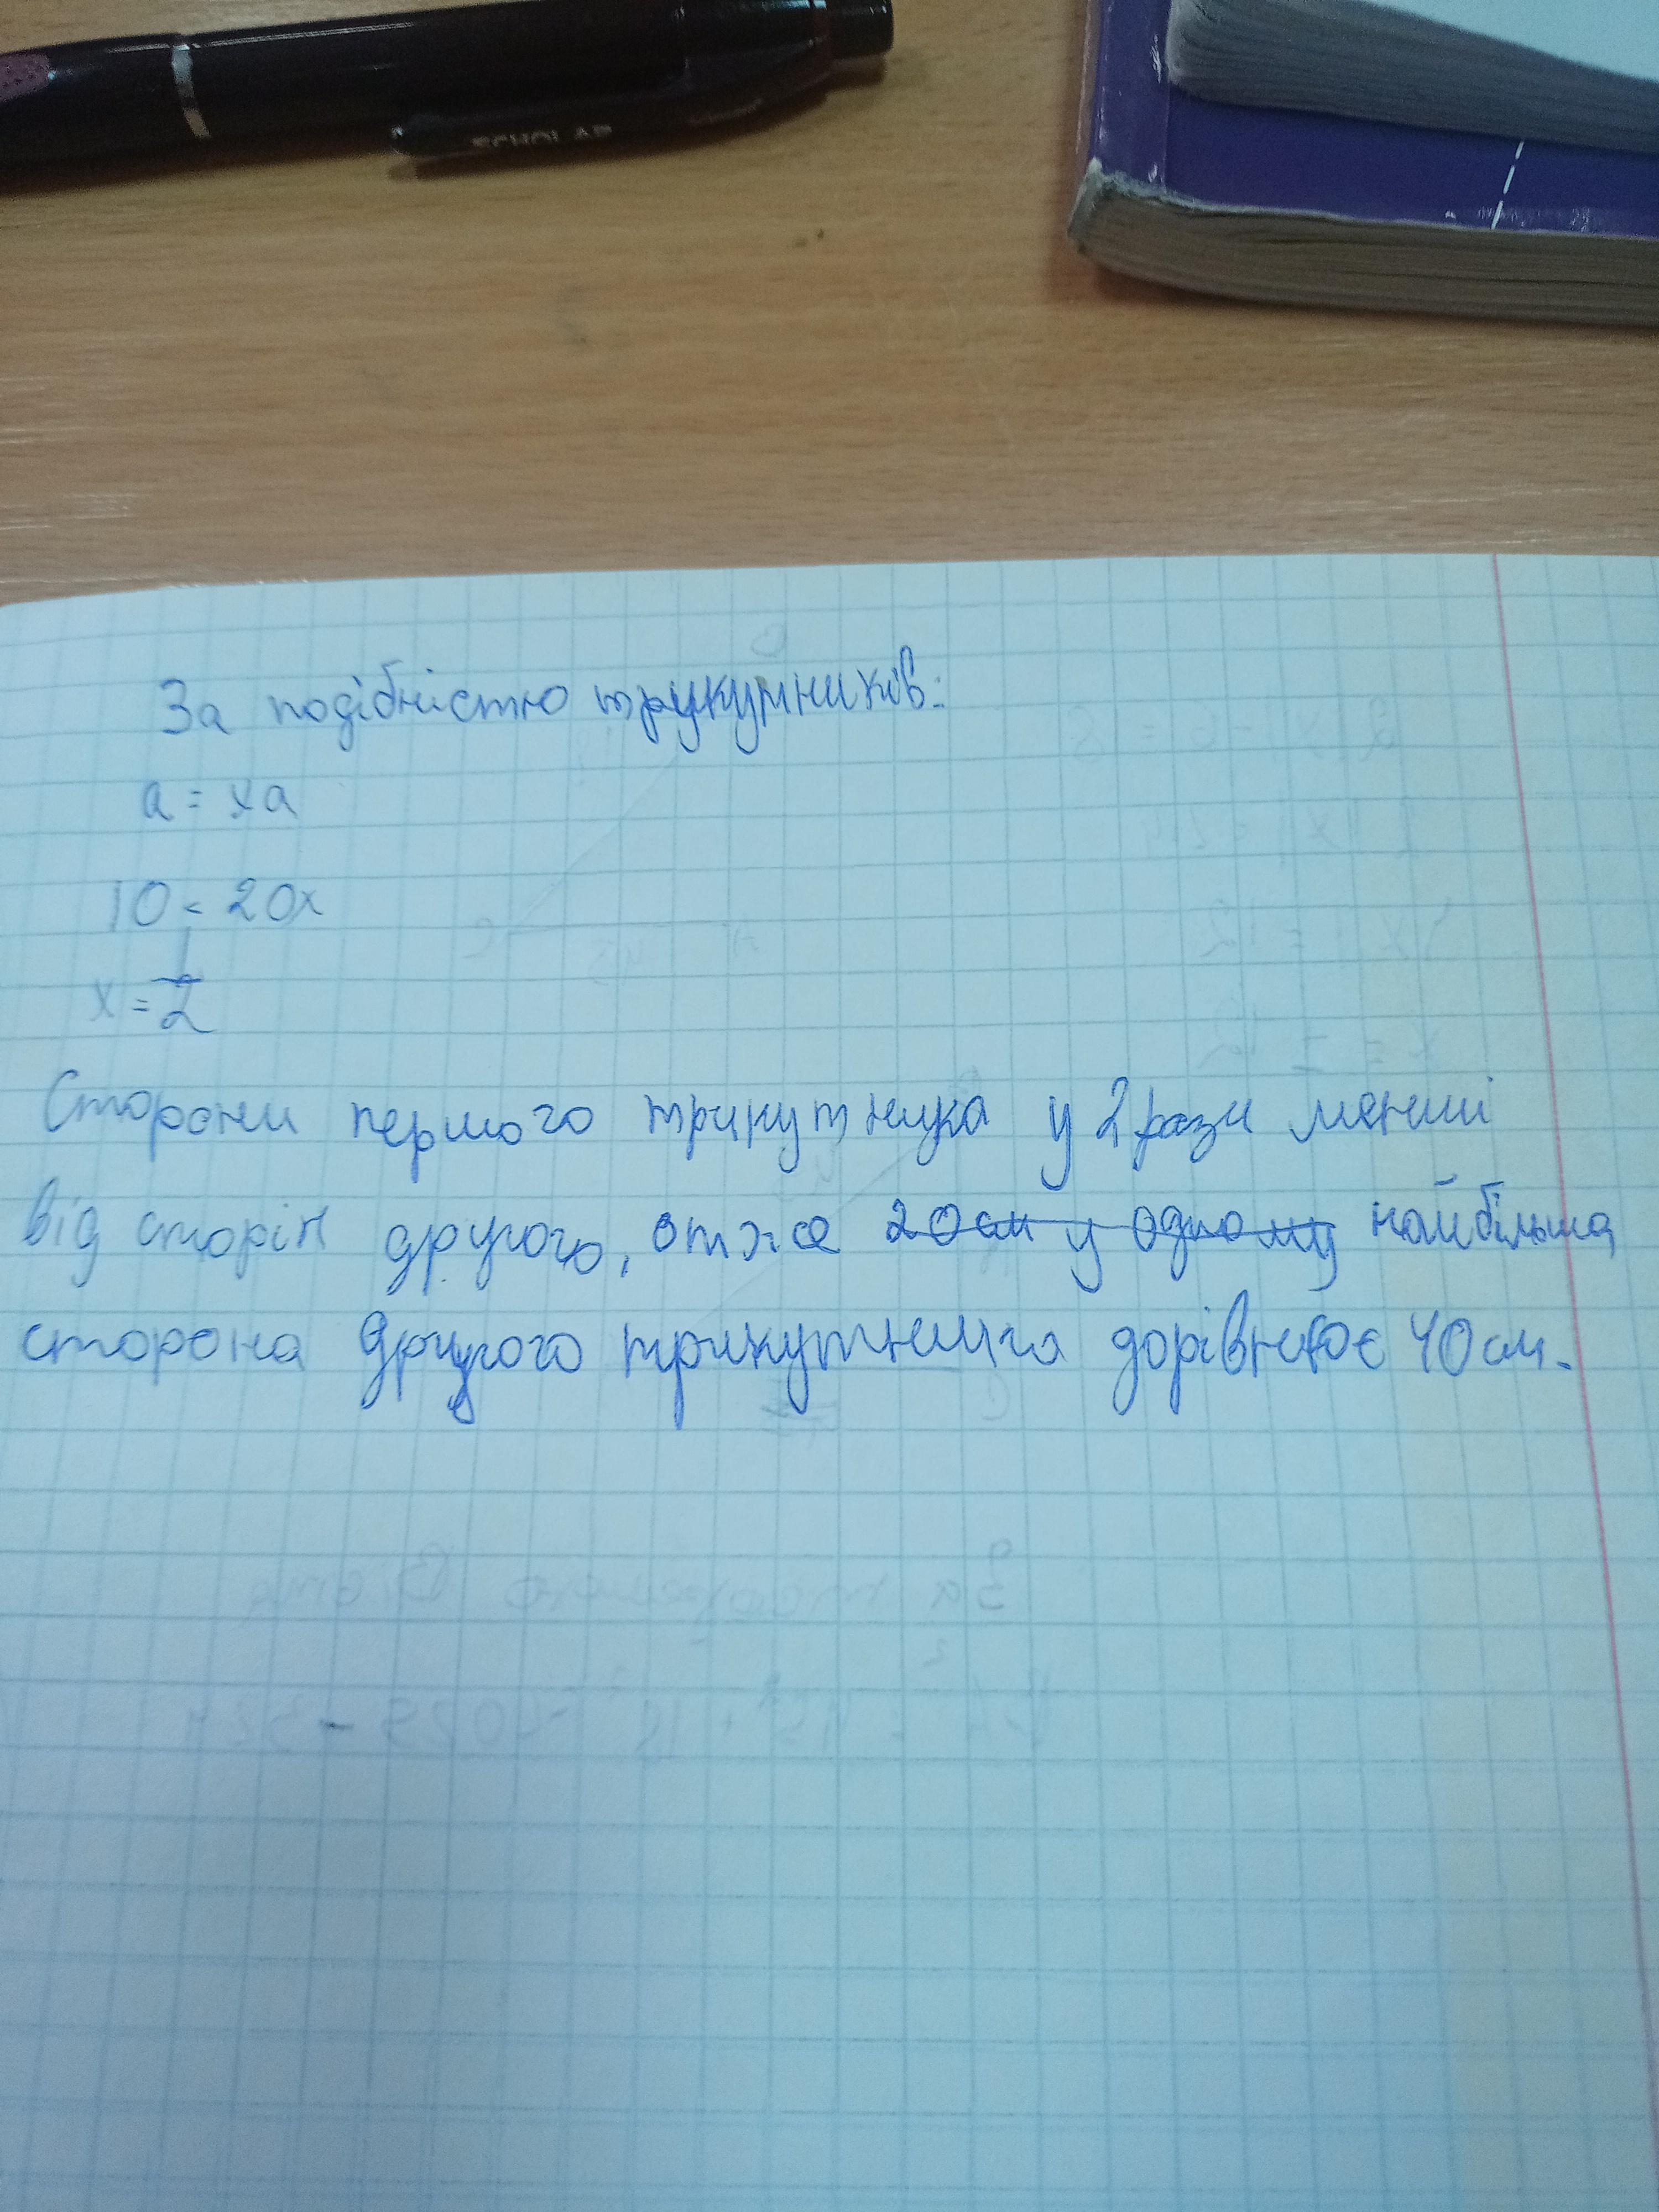 SCHOLAR
За подібністю трикутників:
a = xa
10 = 20x
x = 1/2
Сторони першого трикутника у 2 рази менші
від сторін другого, отже 20 см у одному найбільша
сторона другого трикутника дорівнює 40 см.